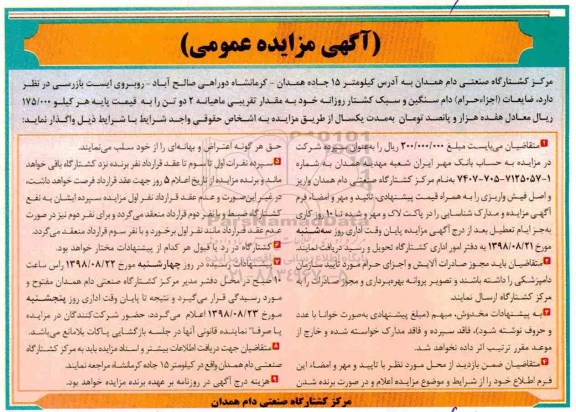 (آگهی مزایده عمومی)
مرکز کشتارگاه صنعتی دام همدان به آدرس کیلومتر ۱۵ جاده همدان - کرمانشاه دوراهی صالح آباد - روبروی ایست بازرسی در نظر
دارد، ضایعات (اجزاءحرام) دام سنگین و سبک کشتار روزانه خود به مقدار تقریبی ماهیانه ۲ دو تن را به قیمت پایه هر کیلو ۱۷۵/۰۰۰
ریال معادل هفده هزار و پانصد تومان به‌مدت یکسال از طریق مزایده به اشخاص حقوقی واجد شرایط با شرایط ذیل واگذار نماید:
۱ متقاضیان می‌بایست مبلغ ۲۰۰/۰۰۰/۰۰۰ ریال را به‌عنوان سپرده شرکت
در مزایده به حساب بانک مهر ایران شعبه مهدیه همدان به شماره
۷۴۰۷-۷۰۵-۷۱۲۵۰۵۷-۱ به‌نام مرکز کشتارگاه صنعتی دام همدان واریز
و اصل فیش واریزی را به همراه قیمت پیشنهادی، تائید و مهر و امضاء فرم
آگهی مزایده و مدارک شناسایی را در پاکت لاک و مهر شده تا ۱۰ روز کاری
به‌جز ایام تعطیل بعد از درج آگهی مزایده پایان وقت اداری روز سه‌شنبه
مورخ ۱۳۹۸/۰۸/۲۱ به دفتر امور اداری کشتارگاه تحویل و رسید دریافت نمایند.
۲ متقاضیان باید مجوز صادرات آلایش و اجزای حرام مورد تایید سازمان
دامپزشکی را داشته باشند و تصویر پروانه بهره‌برداری و مجوز صادرات را به
مرکز کشتارگاه ارسال نمایند.
۳ به پیشنهادات مخدوش، مبهم (مبلغ پیشنهادی به‌صورت خوانا با عدد
و حروف نوشته شود)، فاقد سپرده و فاقد مدارک خواسته شده و خارج از
موعد مقرر ترتیب اثر داده نخواهد شد.
۴ متقاضیان ضمن بازدید از محل مورد نظر با تایید و مهر و امضاء این
فرم اطلاع خود را از شرایط و موضوع مزایده اعلام و در صورت برنده شدن
حق هر گونه اعتراض و بهانه‌ای را از خود سلب می‌نمایند.
۵ سپرده نفرات اول تا سوم تا عقد قرارداد نفر برنده نزد کشتارگاه باقی خواهد
ماند و برنده مزایده از تاریخ اعلام ۵ روز جهت عقد قرارداد فرصت خواهد داشت،
در غیر این‌صورت و عدم عقد قرارداد نفر اول مزایده سپرده ایشان به نفع
کشتارگاه ضبط و با نفر دوم قرارداد منعقد می‌گردد و برای نفر دوم نیز در صورت
عدم عقد قرارداد مانند نفر اول برخورد و با نفر سوم قرارداد منعقد می‌گردد.
۶ کشتارگاه در رد یا قبول هر کدام از پیشنهادات مختار خواهد بود.
۷ پیشنهادات رسیده در روز چهارشنبه مورخ ۱۳۹۸/۰۸/۲۲ راس ساعت
۱۰ صبح در محل دفتر مدیر مرکز کشتارگاه صنعتی دام همدان مفتوح و
مورد رسیدگی قرار می‌گیرد و نتیجه تا پایان وقت اداری روز پنجشنبه
مورخ ۱۳۹۸/۰۸/۲۳ اعلام می‌گردد، حضور شرکت‌کنندگان در مزایده
یا صرفاً نماینده قانونی آنها در جلسه بازگشایی پاکات بلامانع می‌باشد.
۸ متقاضیان جهت دریافت اطلاعات بیشتر و اسناد مزایده باید به مرکز کشتارگاه
صنعتی دام همدان واقع در کیلومتر ۱۵ جاده کرمانشاه مراجعه نمایند.
۹ هزینه درج آگهی در روزنامه بر عهده برنده مزایده خواهد بود.
مرکز کشتارگاه صنعتی دام همدان